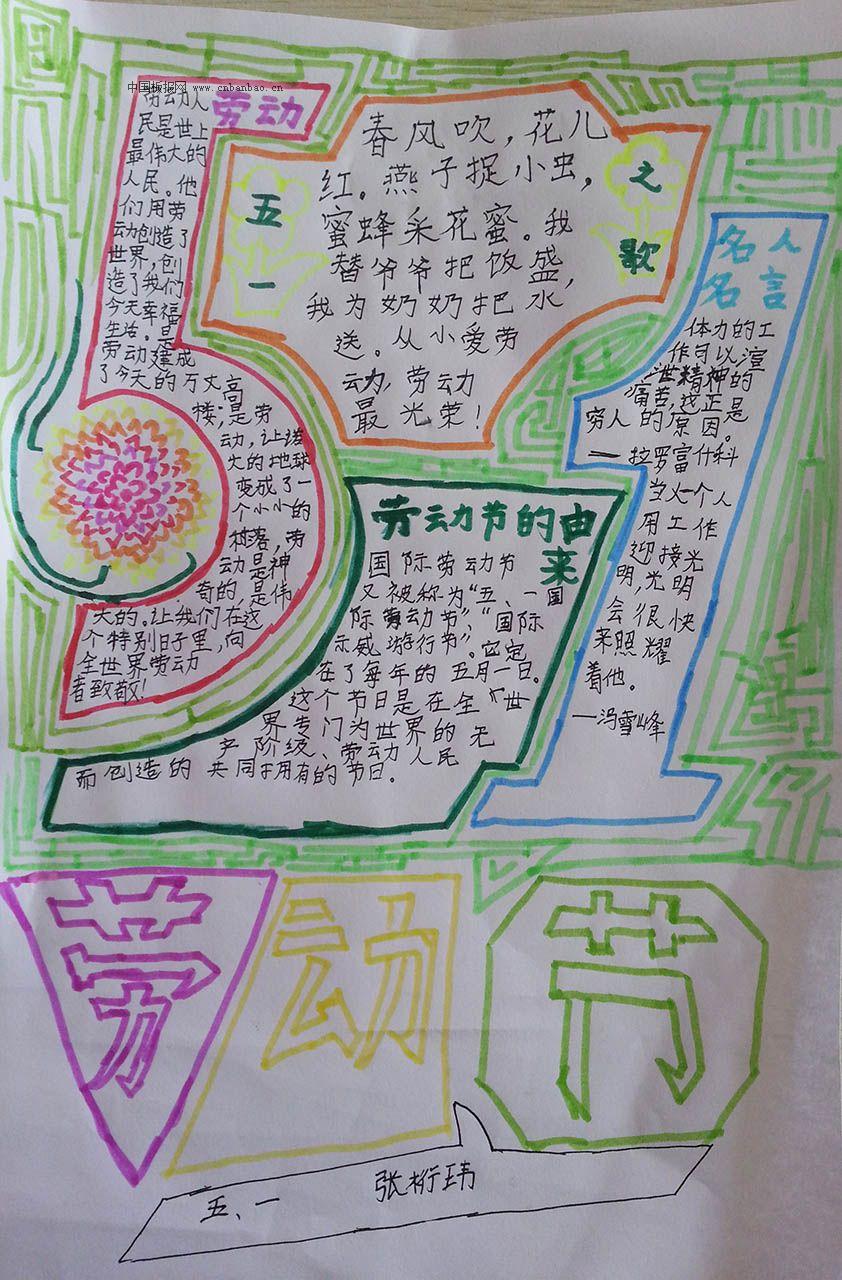 中国板报网 www.cnbanbao.cn
劳动
劳动人
民是世上
最伟大的
人民。他
们用劳
动创造了
世界,创
造了我们
今天幸福
生活。是
劳动建成
了今天的万丈高
楼;是劳
动,让诺
大的地球
变成了一
个小小的
村落,劳
动是神
奇的,是伟
大的。让我们在这
个特别日子里,向
全世界劳动
者致敬!
五一
之歌
春风吹,花儿
红。燕子捉小虫,
蜜蜂采花蜜。我
替爷爷把饭盛,
我为奶奶把水
送。从小爱劳
动,劳动
最光荣!
名人
名言
体力的工
作可以渲
泄精神的
痛苦,这正是
穷人的原因。
—拉罗富什科
当火一个人
用工作
迎接光
明,光明
会很快
来照耀
着他。
—冯雪峰
劳动节的由
来
国际劳动节
又被称为“五、一国
际劳动节”、“国际
示威游行节”。它定
在了每年的五月一日。
这个节日是在全世
界专门为世界的无
产阶级、劳动人民
而创造的共同拥有的节日。
劳动节
五、一 张桁玮